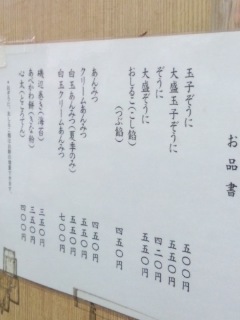 お品書
玉子ぞうに 五〇〇円
大盛玉子ぞうに 五五〇円
ぞうに 四二〇円
大盛ぞうに 五五〇円
おしるこ(こし餡)
(つぶ餡) 四五〇円
あんみつ 四五〇円
クリームあんみつ 五五〇円
白玉あんみつ(夏季のみ) 五五〇円
白玉クリームあんみつ 七〇〇円
磯辺巻き(海苔) 三五〇円
あべかわ餅(きな粉) 三五〇円
心太(ところてん) 四〇〇円